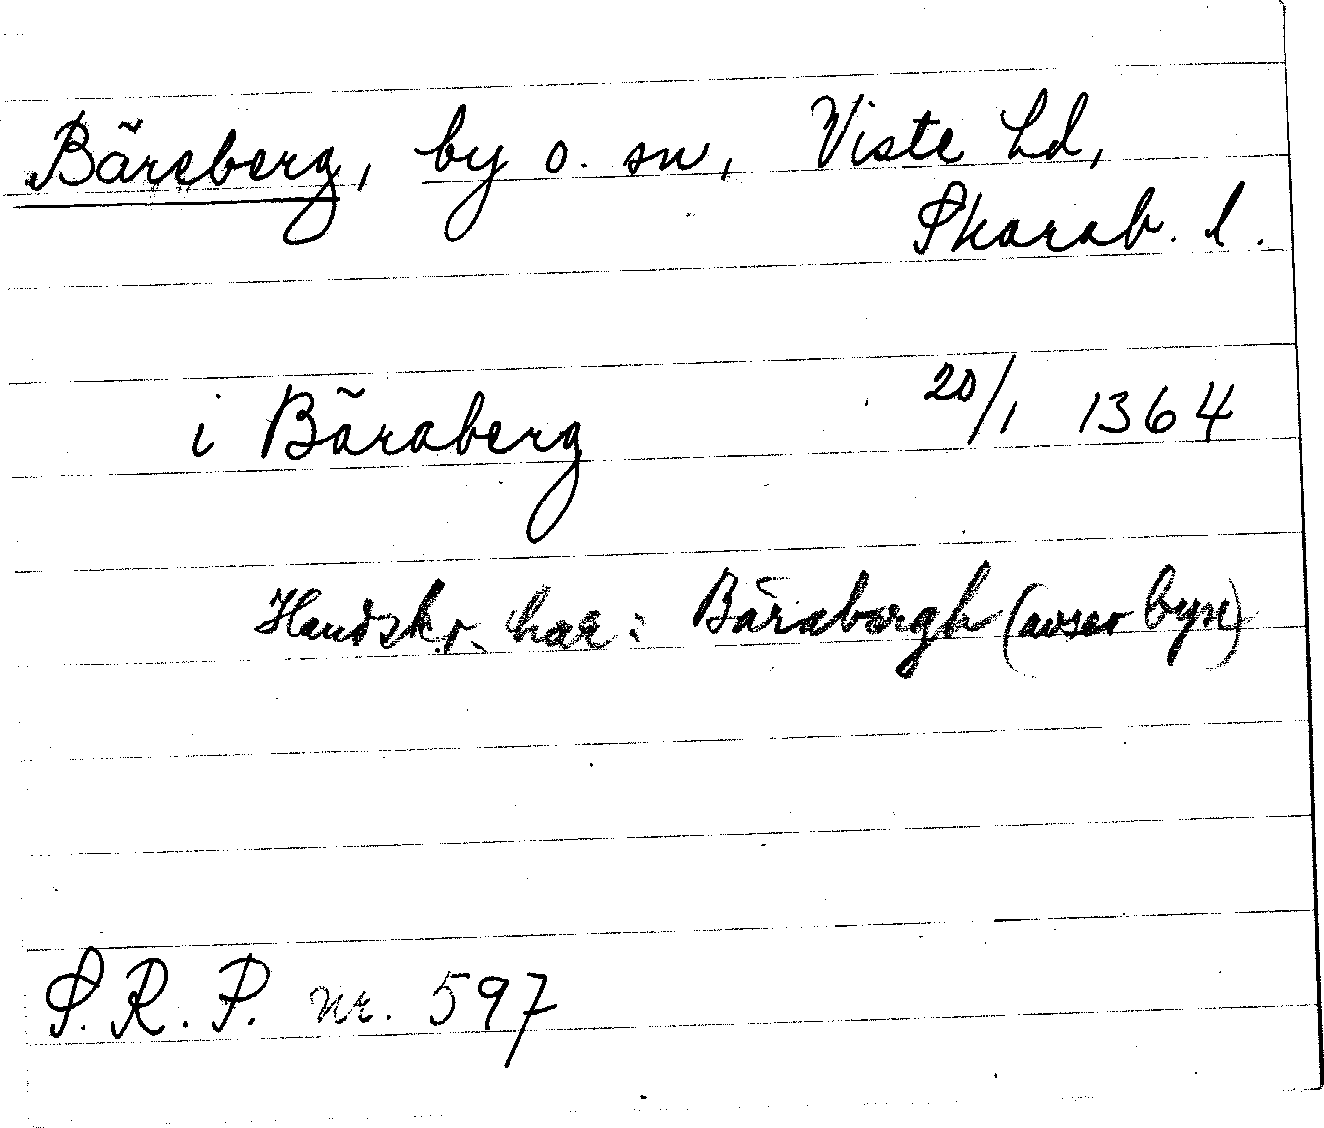 Bäreberg, by o. sn, Viste hd,
Skarab. l.
i Bäraberg 20/1 1364
Handskr. har: Bärabergh (avser byn)
S.R.P. nr. 597